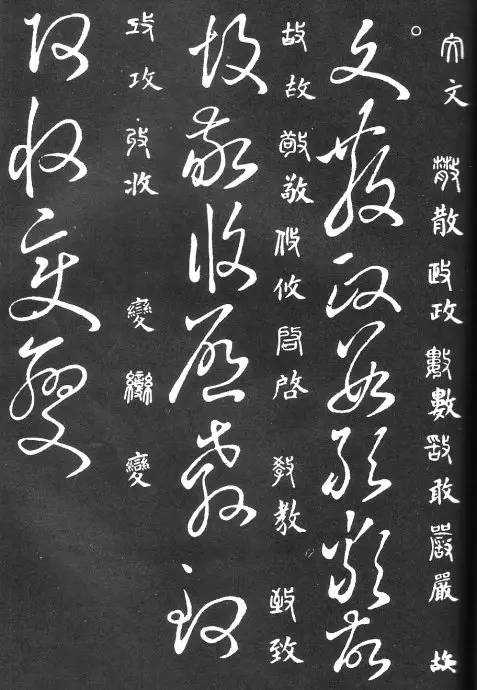 文文 散散 政政 數數 敢敢 嚴嚴 故
文散政數敢嚴故
故故 敬敬 攸攸 啓啓 教教 致致
故敬攸啓教致
攻攻 收收 變 變 變
攻收變變